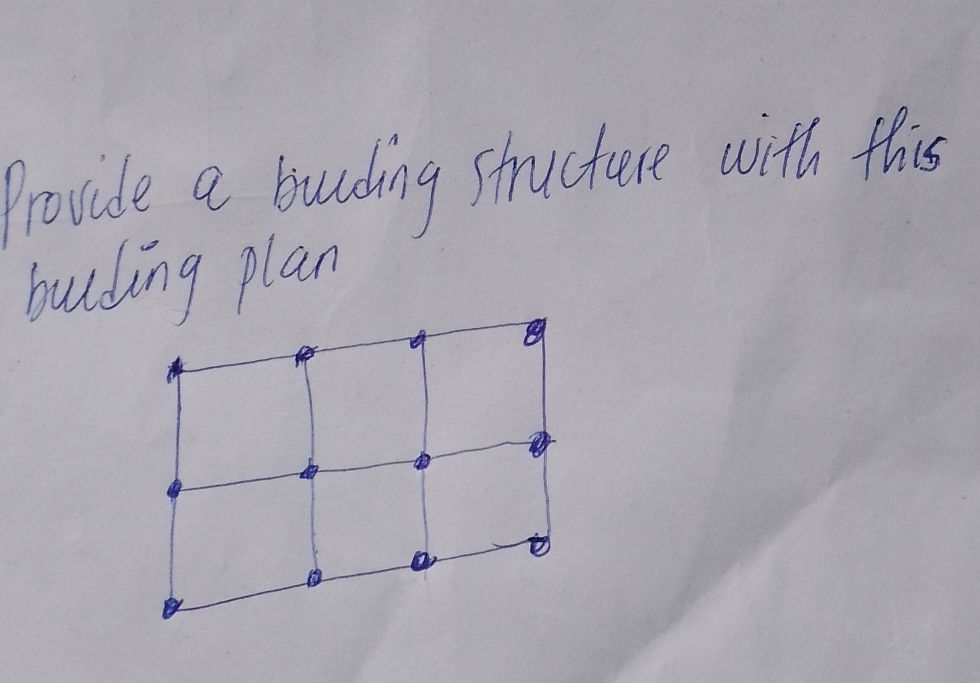 Provide a building structure with this
building plan